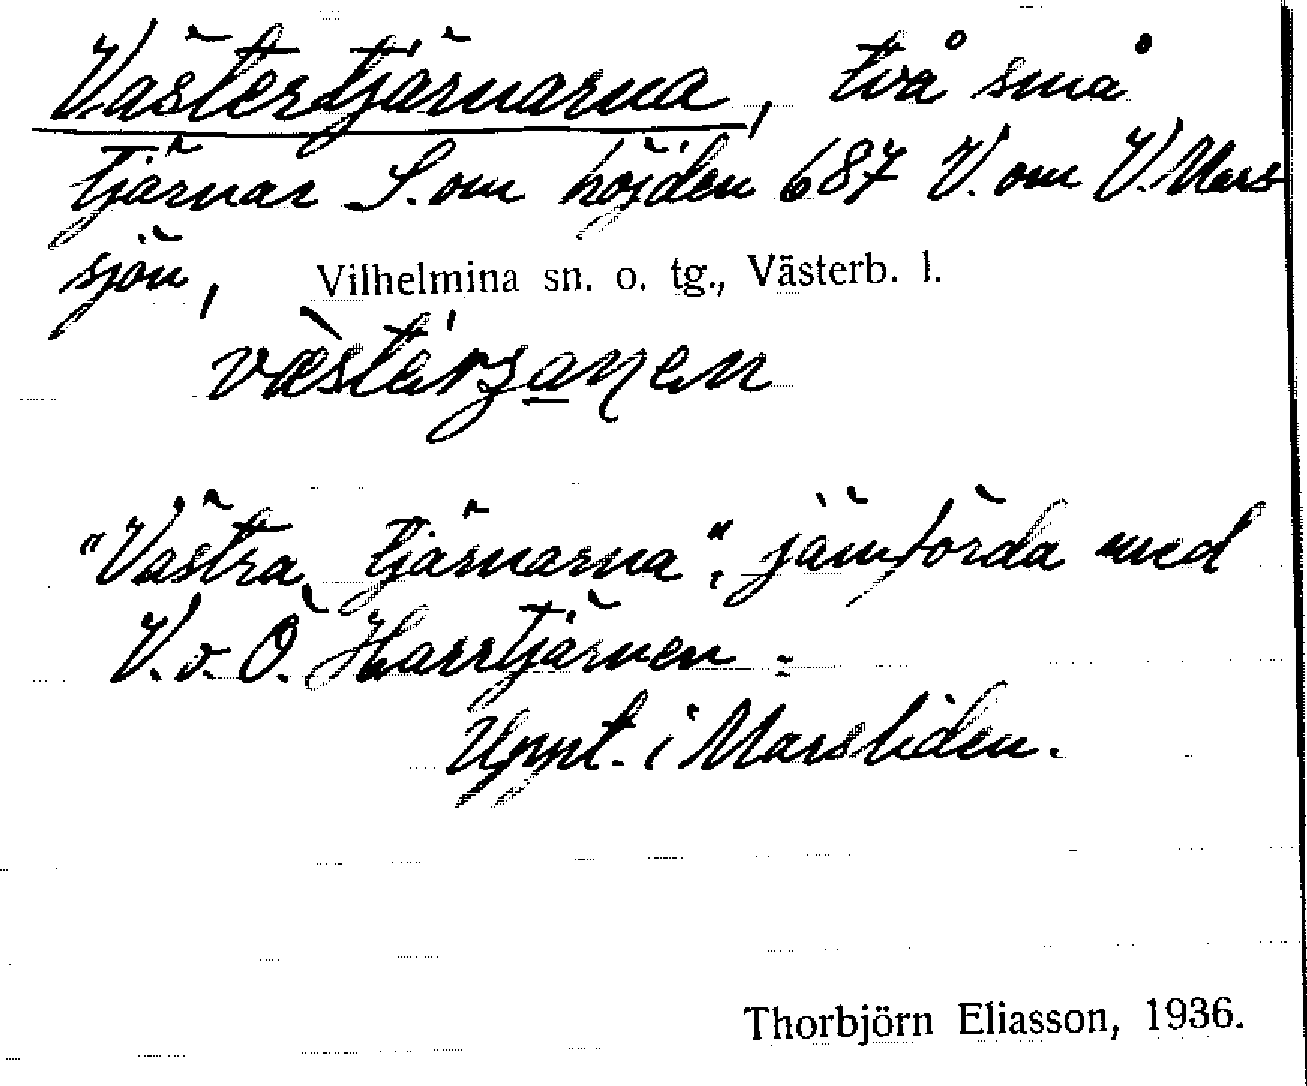 Västertjärnarna, två små
tjärnar S. om höjden 687 V. om V. Mars
sjön, Vilhelmina sn. o. tg., Västerb. l.
"Västra tjärnarna", jämförda med
V. o. Ö. Harrtjärnen.
Uppt. i Marsliden.
Thorbjörn Eliasson, 1936.